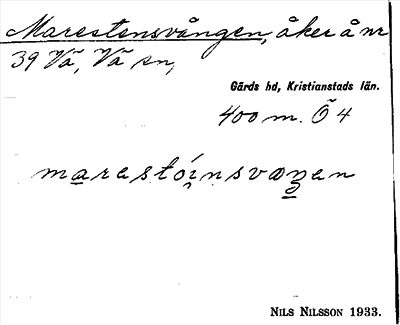 Marestensvången, åker å nr
39 Vä, Vä sn,
Gärds hd, Kristianstads län.
400 m. Ö 4
marestóinsvæŋen
NILS NILSSON 1933.